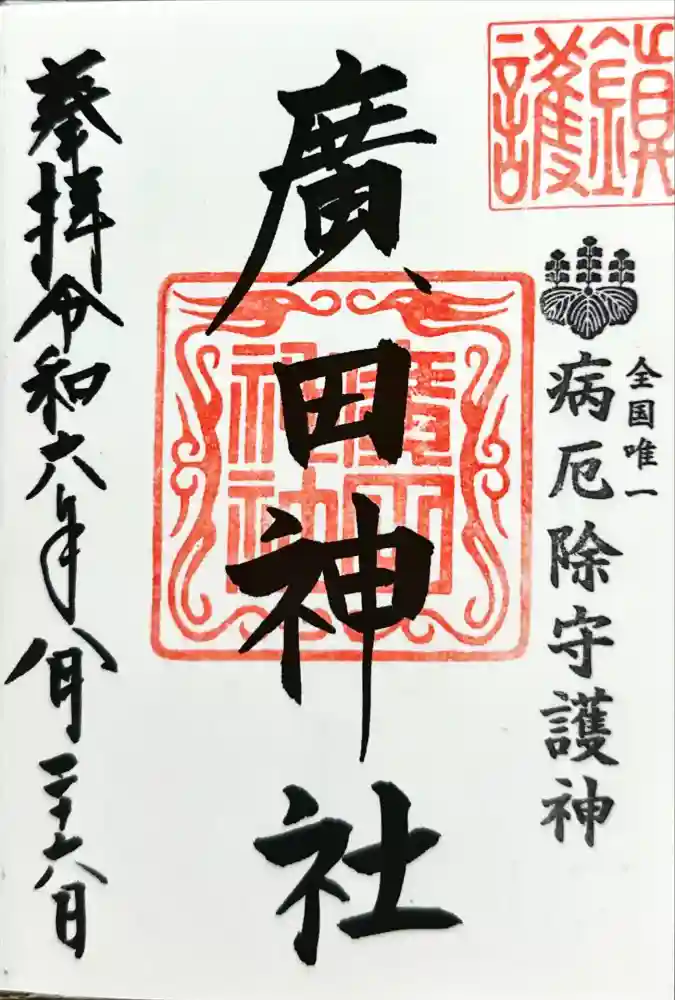 鎮護
全国唯一
病厄除守護神
廣田神社
廣田神社
奉拝令和六年八月二十六日